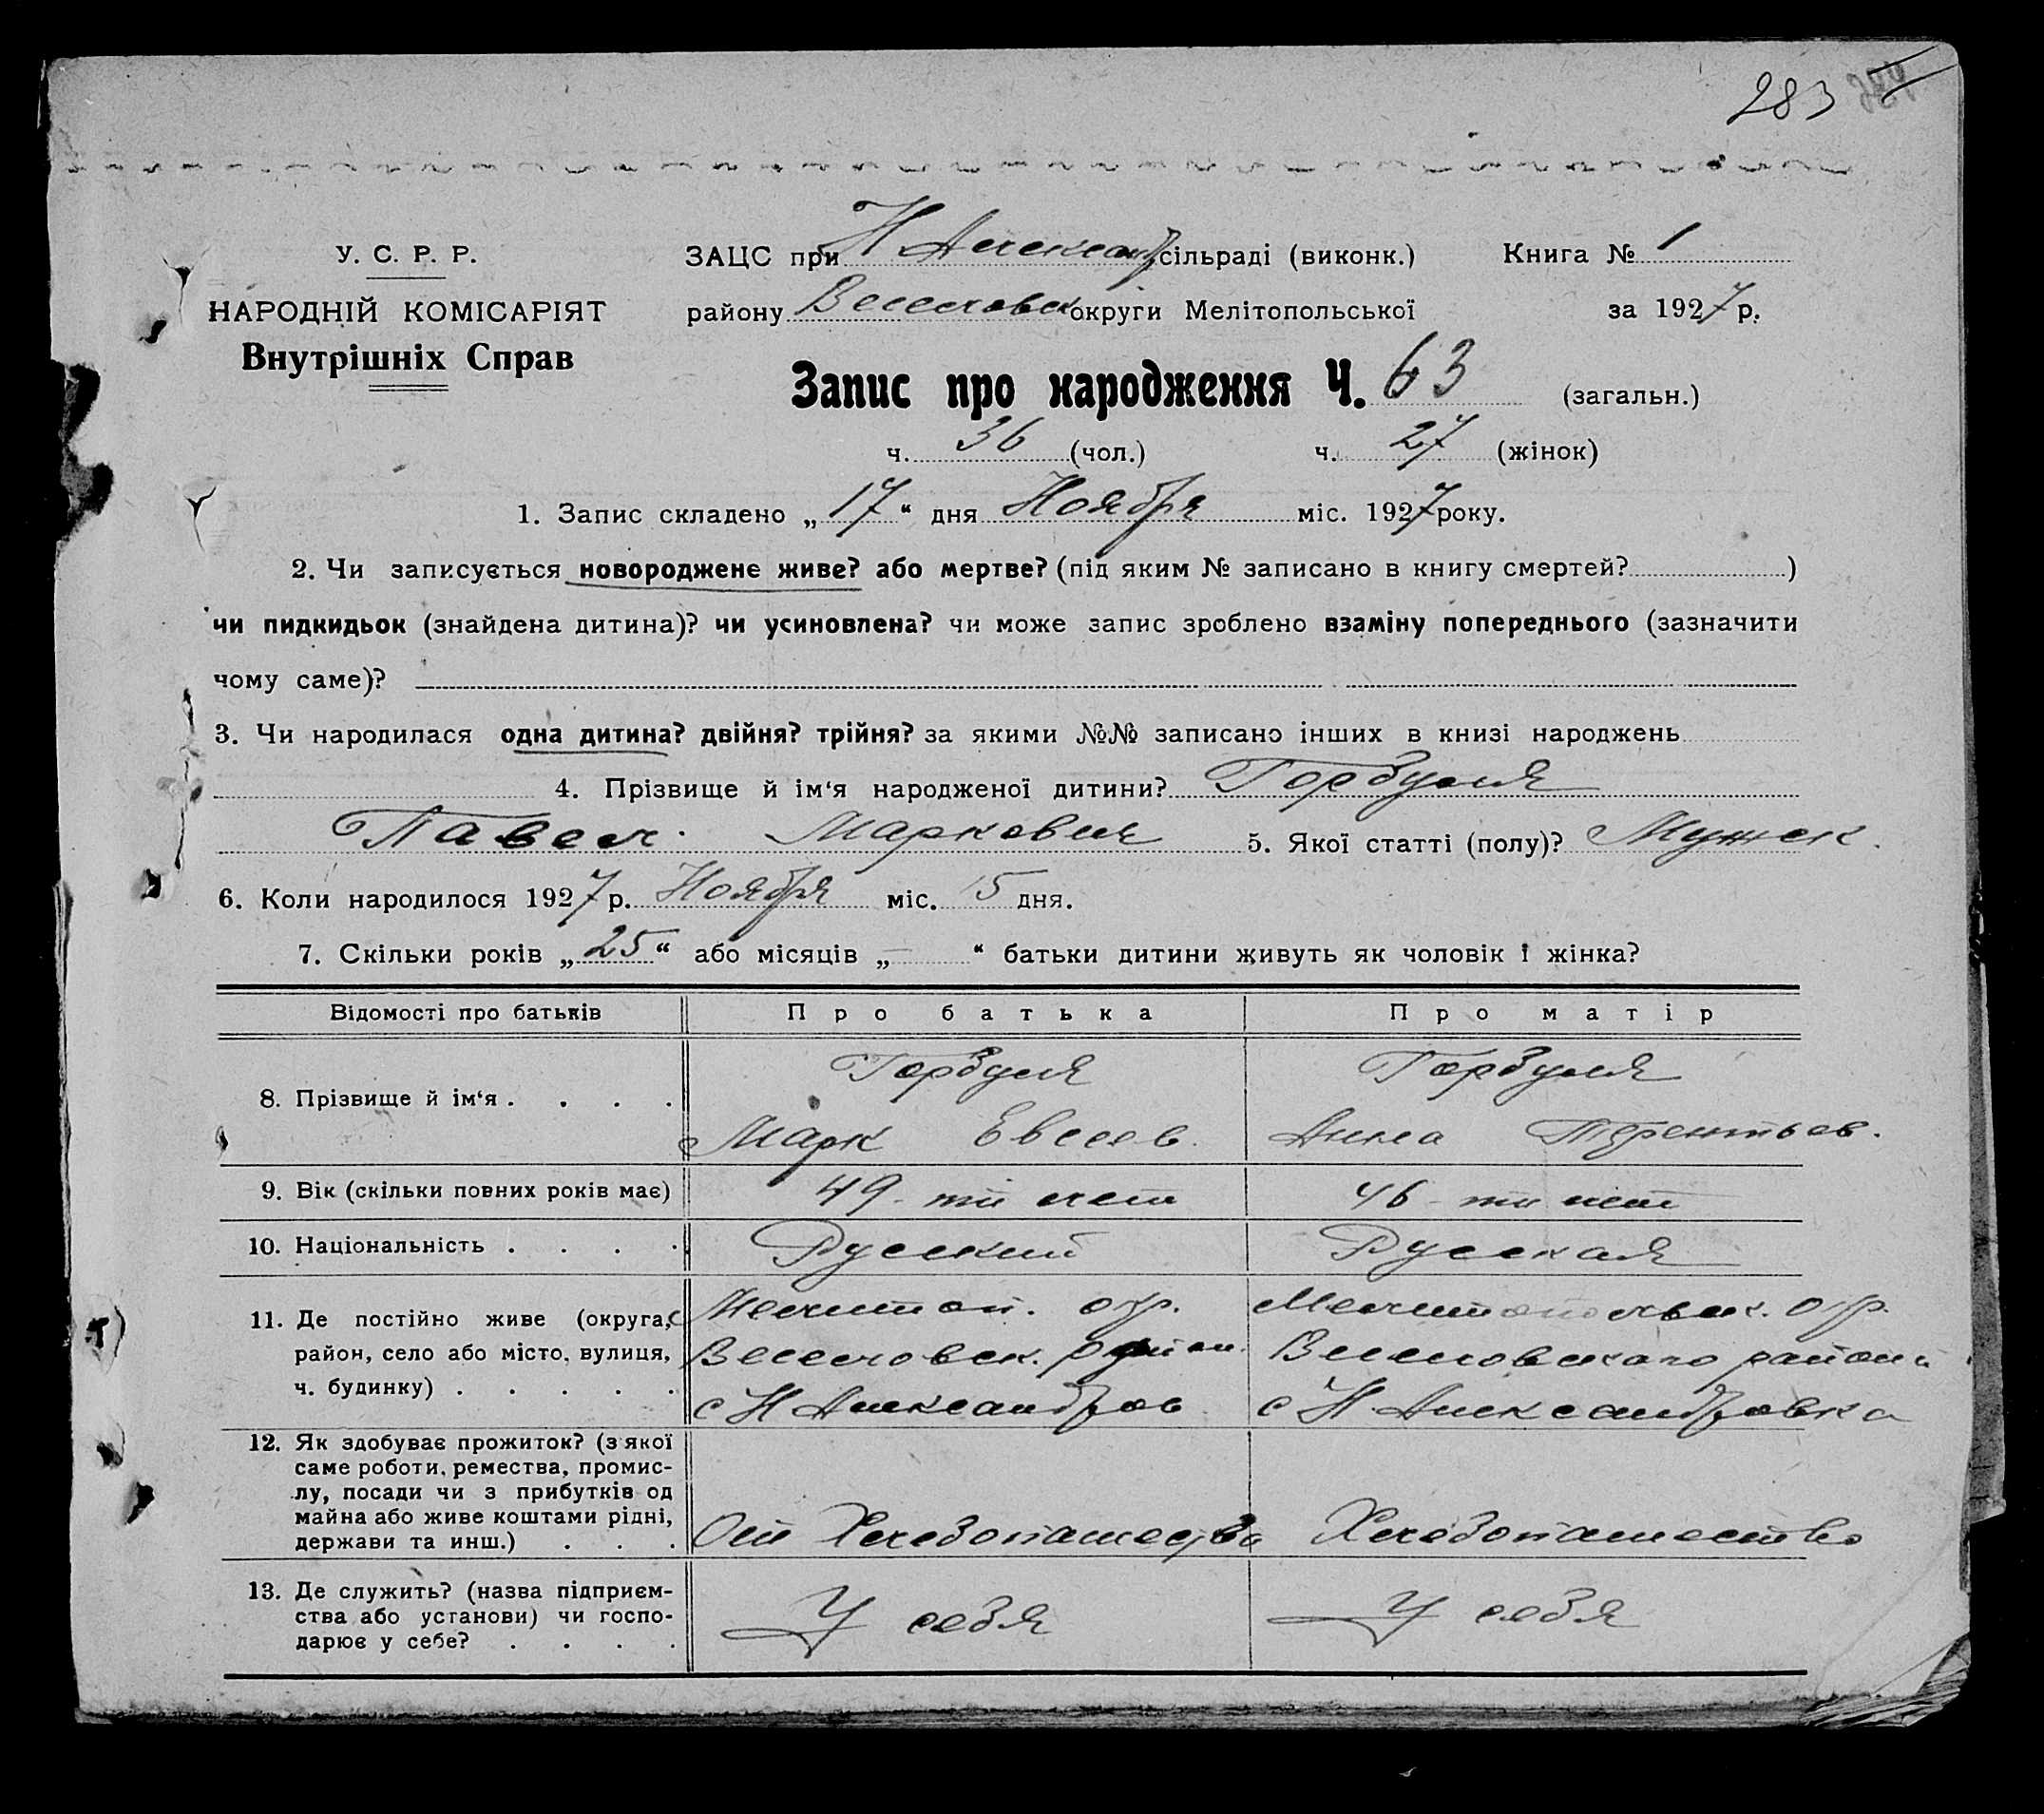 283
У. С. Р. Р.
НАРОДНІЙ КОМІСАРІЯТ
Внутрішніх Справ
ЗАЦС при Н Александ сільраді (виконк.) Книга № 1
району Веселовск округи Мелітопольської за 1927 р.
Запис про народження Ч. 63 (загальн.)
ч. 36 (чол.) ч. 27 (жінок)
1. Запис складено „ 17 “ дня Ноября міс. 1927 року.
2. Чи записується новороджене живе? або мертве? (під яким № записано в книгу смертей? )
чи пидкидьок (знайдена дитина)? чи усиновлена? чи може запис зроблено взаміну попереднього (зазначити
чому саме)?
3. Чи народилася одна дитина? двійня? трійня? за якими №№ записано інших в книзі народжень
4. Прізвище й ім‘я народженої дитини? Горбуля
Павел Маркович 5. Якої статті (полу)? Мужск.
6. Коли народилося 1927 р. Ноября міс. 15 дня.
7. Скільки років „ 25 “ або місяців „ — “ батьки дитини живуть як чоловік і жінка?
Відомості про батьків Про батька Про матір
8. Прізвище й ім‘я . . . . Горбуля Горбуля
Марк Евсеев. Анна Терентьев.
9. Вік (скільки повних років має) 49-ти лет 46-ти лет
10. Національність . . . . Русский Русская
11. Де постійно живе (округа, Мелитоп. окр. Мелитопольск. окр.
район, село або місто, вулиця, Веселовск. район. Веселовского района
ч. будинку) . . . . . с Н Александров с Н Александровка
12. Як здобуває прожиток? (з якої
саме роботи, ремества, промис-
лу, посади чи з прибутків од
майна або живе коштами рідні,
держави та инш.) . . . От Хлебопашества Хлебопашество
13. Де служить? (назва підприєм-
ства або установи) чи госпо-
дарює у себе? . . . . У себя У себя